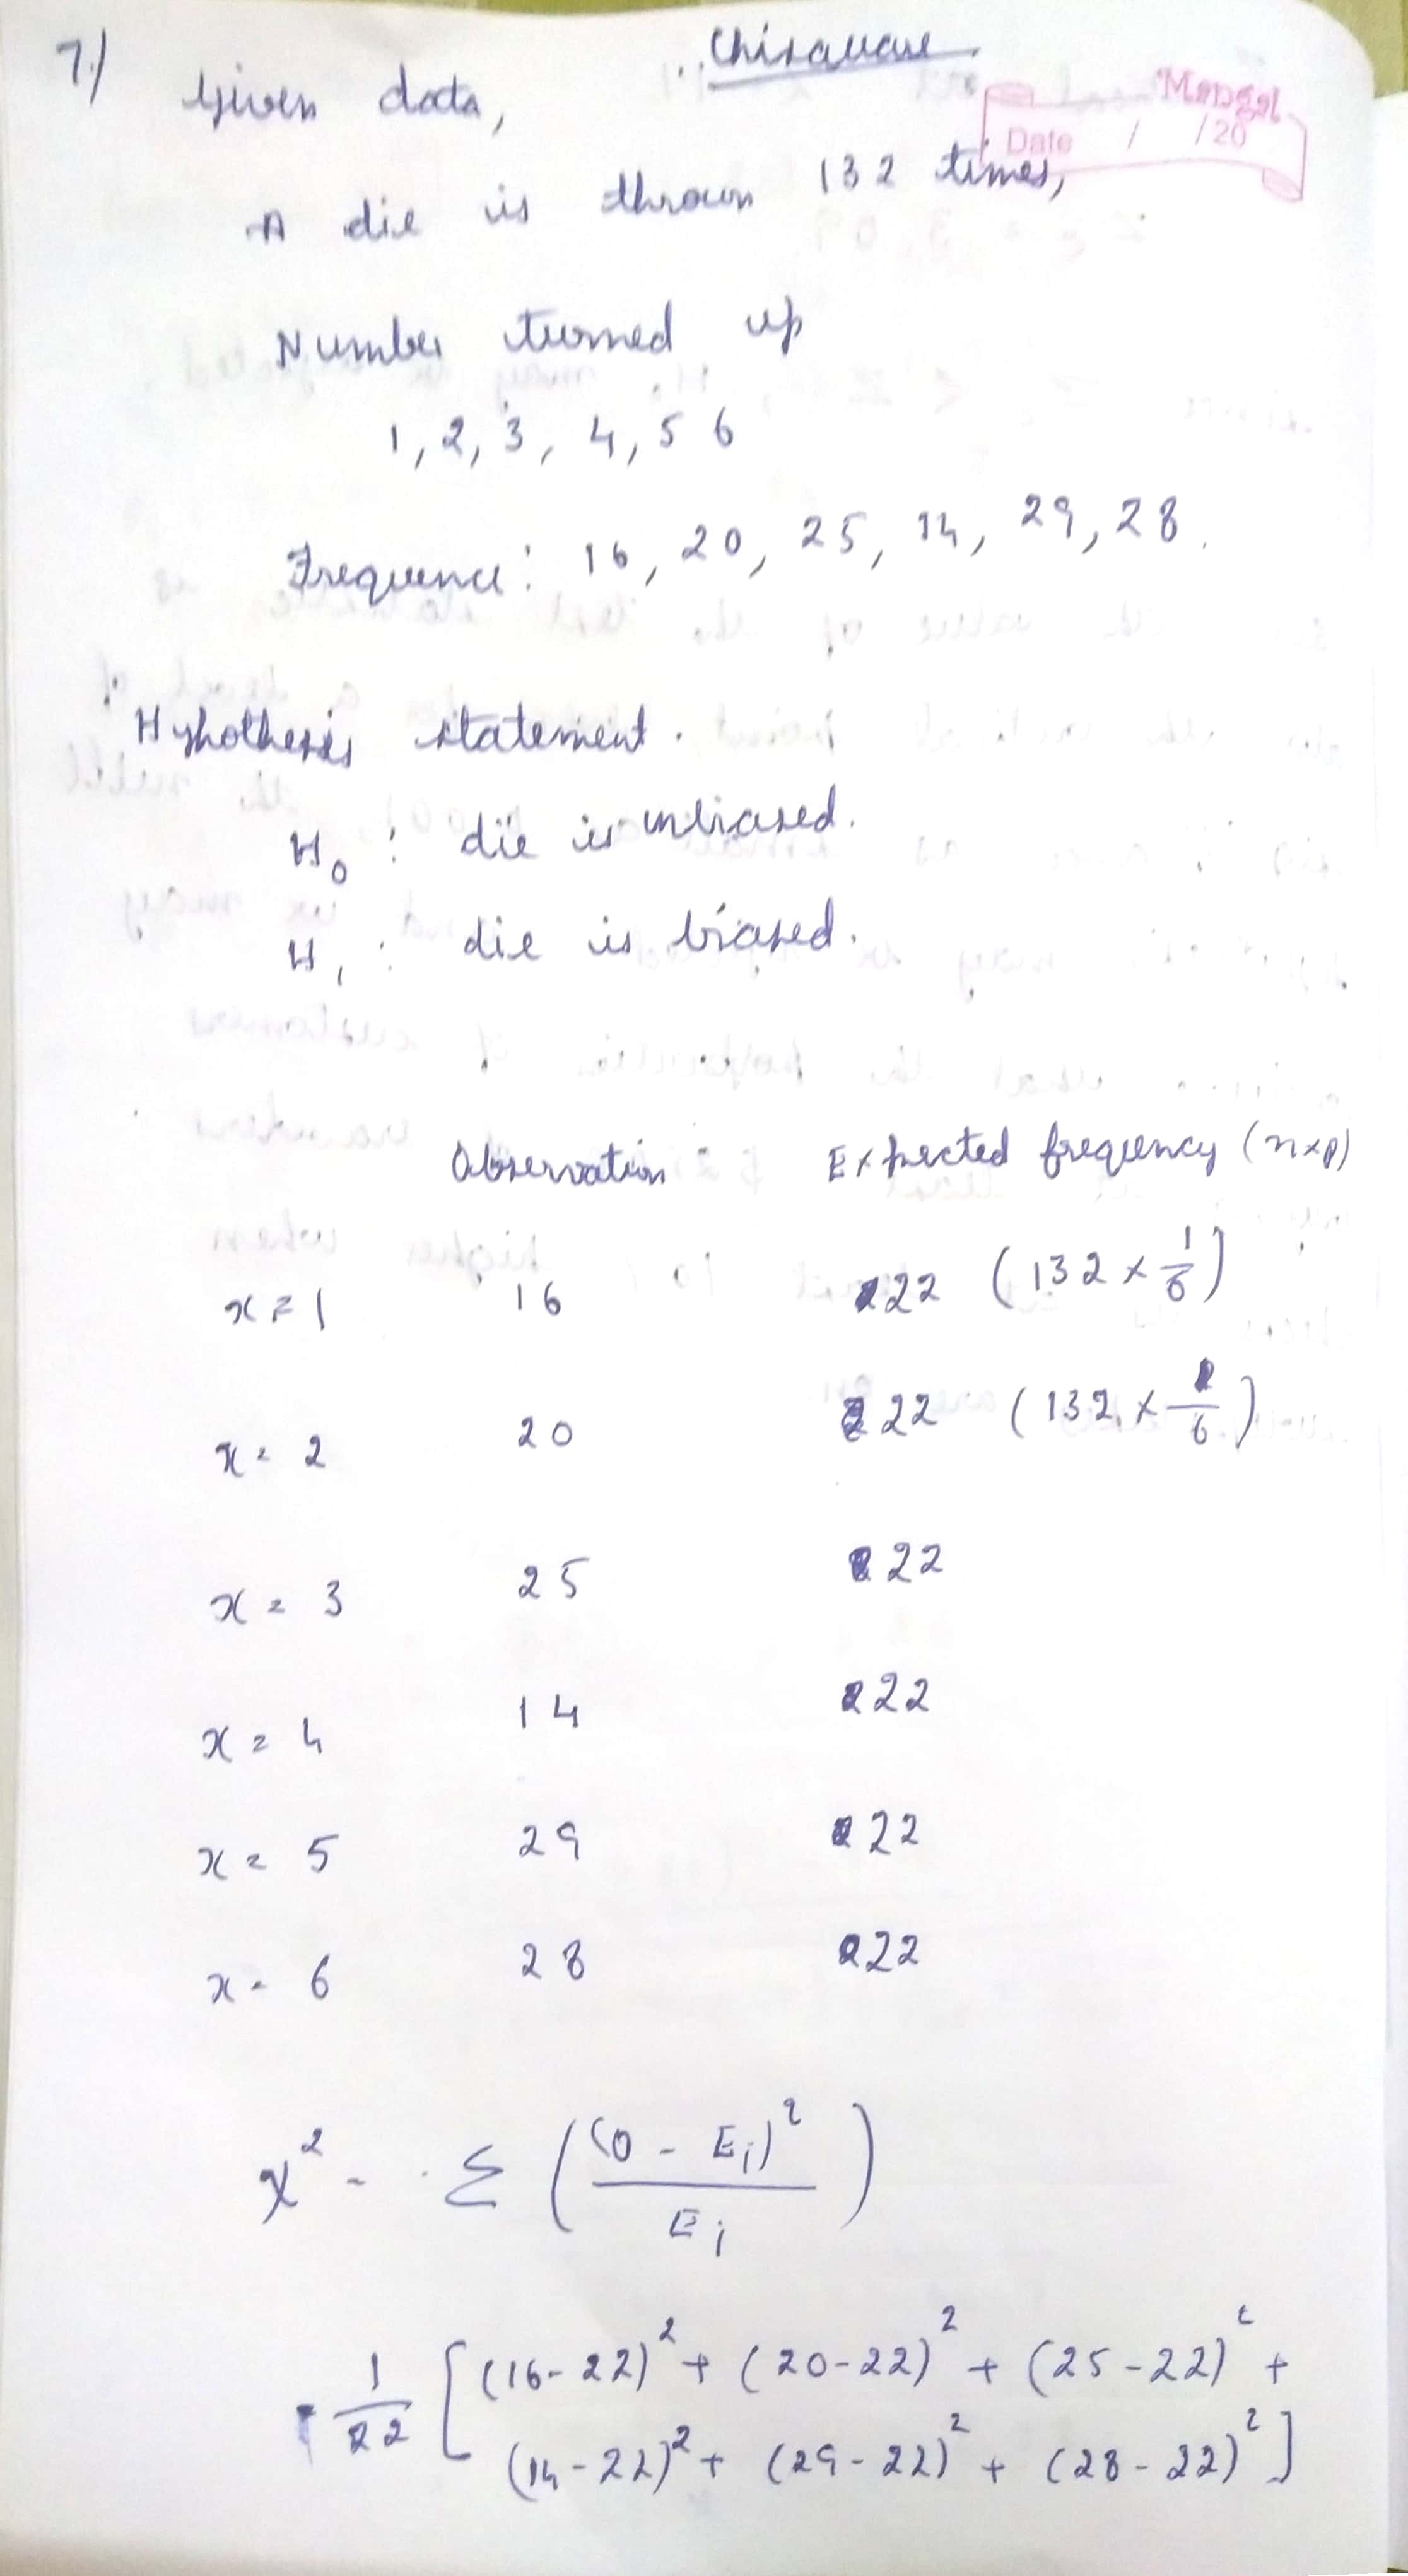 Chisquare
7.) Given data,
Mangal
Date / /20
A die is thrown 132 times,
Number turned up
1, 2, 3, 4, 5 6
Frequence: 16, 20, 25, 14, 29, 28.
Hypothesis statement.
H₀ : die is unbiased.
H₁ : die is biased.
Observation Expected frequency (n×p)
x = 1 16 22 (132 × 1/6)
x = 2 20 22 (132 × 1/6)
x = 3 25 22
x = 4 14 22
x = 5 29 22
x = 6 28 22
χ² = Σ ((O - Eᵢ)² / Eᵢ)
= 1/22 [(16-22)² + (20-22)² + (25-22)² +
(14-22)² + (29-22)² + (28-22)²]